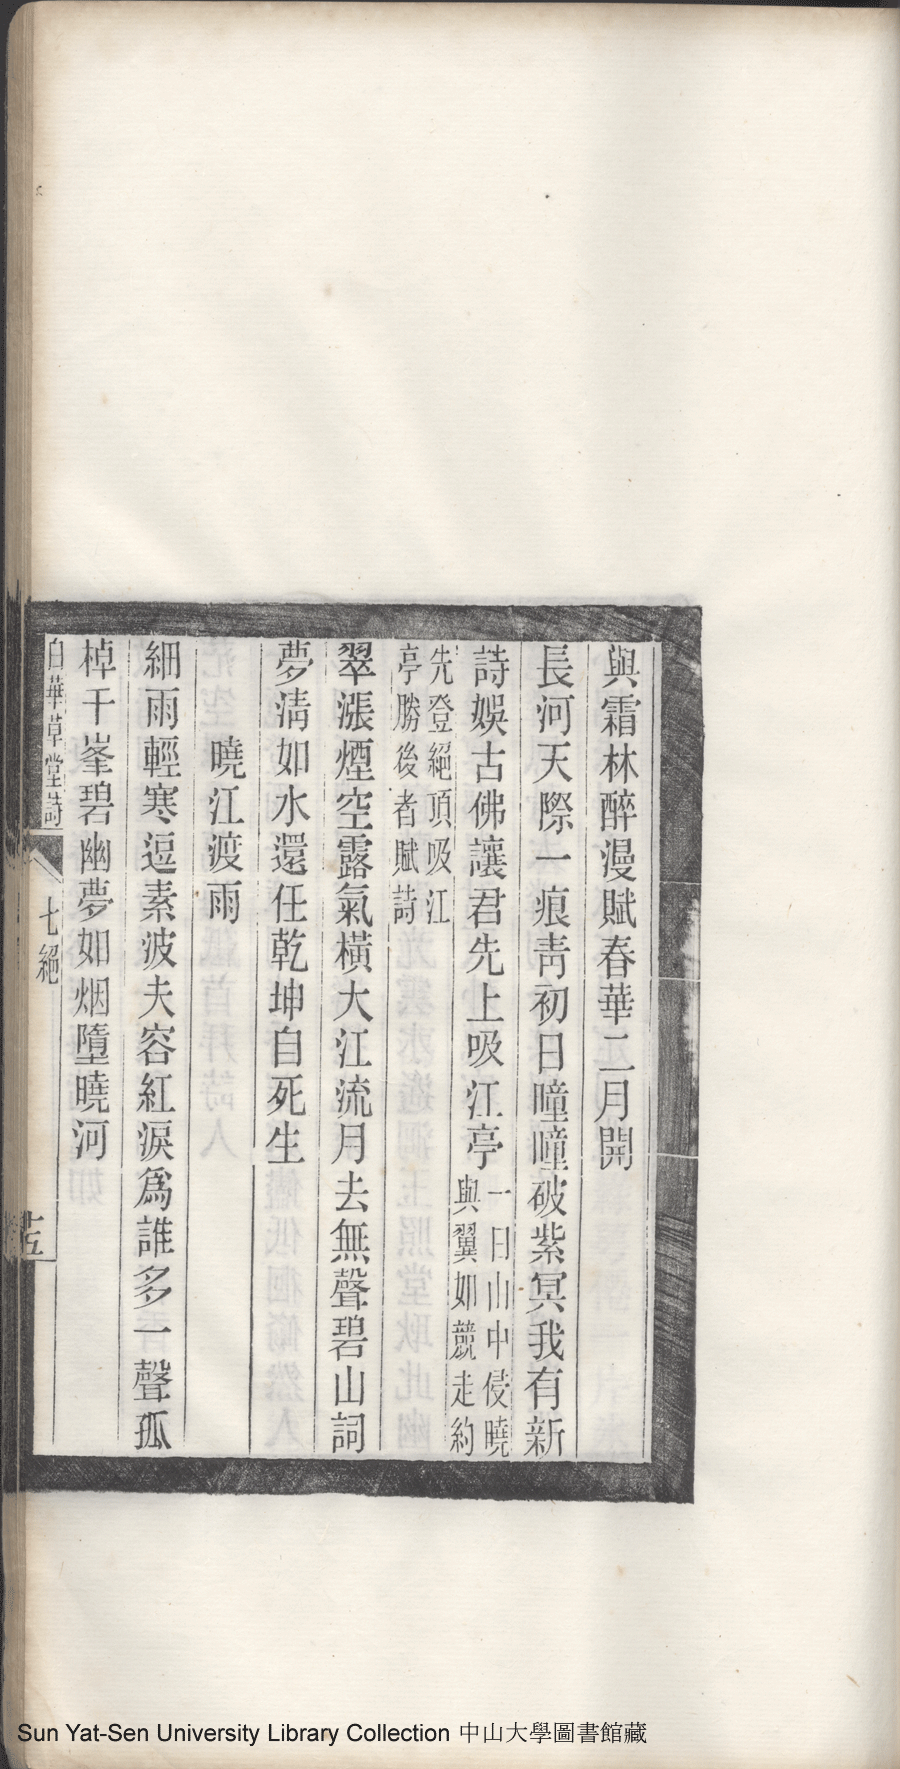 與霜林醉漫賦春華二月開
長河天際一痕青初日曈曈破紫冥我有新
詩娛古佛讓君先上吸江亭一日山中侵曉
與翼如競走約
先登絕頂吸江
亭勝後者賦詩
翠漲煙空露氣橫大江流月去無聲碧山詞
夢清如水還任乾坤自死生
曉江渡雨
細雨輕寒逗素波夫容紅淚爲誰多一聲孤
棹千峯碧幽夢如烟墮曉河
白華草堂詩 七絕 十五
Sun Yat-Sen University Library Collection 中山大學圖書館藏